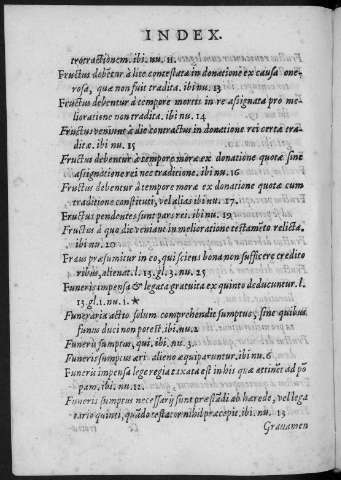 INDEX.
trotractionem. ibi. nu. 11.
Fructus debẽtur à lite contestata in donatione ex causa one-
rosa, quæ non fuit tradita. ibi nu. 13
Fructus debentur à tempore mortis in re assignata pro me-
lioratione non tradita. ibi nu. 14
Fructus veniunt à die contractus in donatione rei certæ tra-
ditæ. ibi nu. 15
Fructus debentur à tempore moræ ex donatione quotæ sine
assignatione rei nec traditione. ibi nu. 16
Fructus debentur à tempore moræ ex donatione quotæ cum
traditione constituti, vel alias ibi nu. 17.
Fructus pendentes sunt pars rei. ibi nu. 19
Fructus à quo die veniant in melioratione testamẽto relicta.
ibi nu. 20
Fraus præsumitur in eo, qui sciens bona non sufficere credito
ribus, alienat. l. 13. gl. 3. nu. 25
Funeris impensa & legata gratuita ex quinto deducuntur. l.
13. gl. 1. nu. 1. *
Funeraria actio solum comprehendit sumptus, sine quibus
funus duci non potest. ibi. nu. 2
Funeris sumptus, qui. ibi. nu. 3.
Funeris sumptus æri alieno æquiparuntur. ibi nu. 6
Funeris impensa lege regia taxata est in his quæ attinẽt ad põ
pam. ibi. nu. 12.
Funeris sumptus necessarij sunt præstãdi ab hærede, vel lega
tario quinti, quãdo testator nihil præcepit. ibi. nu. 13
Grauamen